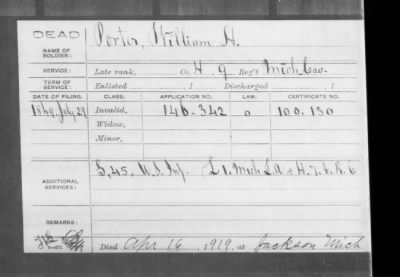 DEAD
NAME OF SOLDIER: Porter, William H.
SERVICE: Late rank, Co. H, 9 Reg't Mich Cav.
TERM OF SERVICE: Enlisted , 1 Discharged , 1
DATE OF FILING. CLASS. APPLICATION NO. LAW. CERTIFICATE NO.
1869, July 29 Invalid, 146.342 o 100.150
Widow,
Minor,
ADDITIONAL SERVICES: G, 45, U.S. Inf. L 1. Mich L.A. & H,
REMARKS:
Died Apr 16, 1919, at Jackson Mich